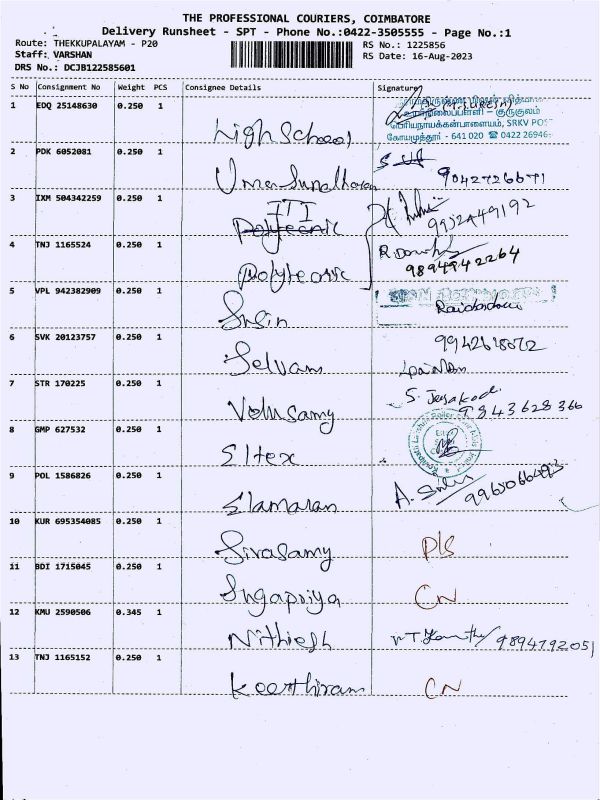 THE PROFESSIONAL COURIERS, COIMBATORE
Delivery Runsheet - SPT - Phone No.:0422-3505555 - Page No.:1
Route: THEKKUPALAYAM - P20
RS No.: 1225856
Staff: VARSHAN
RS Date: 16-Aug-2023
DRS No.: DCJB122585601
S No Consignment No Weight PCS Consignee Details Signature
1 EDQ 25148630 0.250 1 High School
உயர்நிலைப்பள்ளி - குருகுலம்
பெரியநாயக்கன்பாளையம், SRKV POST
கோயமுத்தூர் - 641 020 ☎ 0422 26946
2 PDK 6052081 0.250 1 Uma Sundharam
9042726671
3 IXM 504342259 0.250 1 ITI
Polytecnic
9952449192
4 TNJ 1165524 0.250 1 Polytecnic
9894942264
5 VPL 942382909 0.250 1 Susin
6 SVK 20123757 0.250 1 Selvam 9942618072
7 STR 170225 0.250 1 Velusamy S. Jeyakodi
9843628366
8 GMP 627532 0.250 1 Eltex
9 POL 1586826 0.250 1 Elamaran
10 KUR 695354085 0.250 1 Sivasamy D/S
11 BDI 1715045 0.250 1 Sngapriya CN
12 KMU 2590506 0.345 1 Nithiesh 9894792051
13 TNJ 1165152 0.250 1 Keerthiram CN